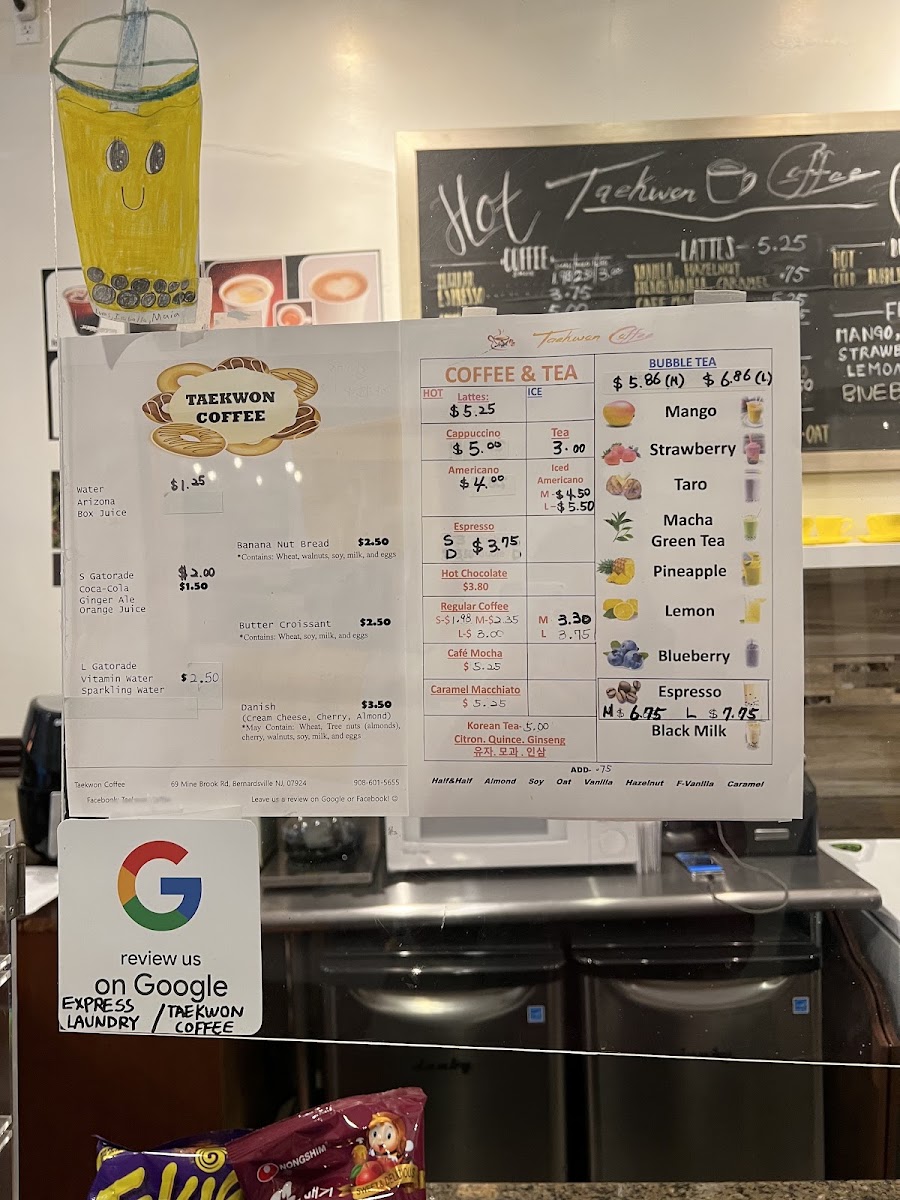 Hot
Taekwon Coffee
COFFEE
LATTES- 5.25
HOT
VANILLA, HAZELNUT
.75
ESPRESSO
3.75
MANGO,
STRAWB
LEMO
BLUEB
-OAT
TAEKWON
COFFEE
Water $1.25
Arizona
Box Juice
Banana Nut Bread $2.50
*Contains: Wheat, walnuts, soy, milk, and eggs
S Gatorade $2.00
Coca-Cola $1.50
Ginger Ale
Orange Juice
Butter Croissant $2.50
*Contains: Wheat, soy, milk, and eggs
L Gatorade
Vitamin Water $2.50
Sparkling Water
Danish $3.50
(Cream Cheese, Cherry, Almond)
*May Contain: Wheat, Tree nuts (almonds),
cherry, walnuts, soy, milk, and eggs
Taekwon Coffee 69 Mine Brook Rd, Bernardsville NJ, 07924 908-601-5655
Facebook: Leave us a review on Google or Facebook! ☺
Taekwon Coffee
COFFEE & TEA
HOT
ICE
Lattes:
$5.25
Cappuccino
$5.00
Tea
3.00
Americano
$4.00
Iced
Americano
M-$4.50
L-$5.50
Espresso
S
D $3.75
Hot Chocolate
$3.80
Regular Coffee
S-$1.98 M-$2.35
L-$ 3.00
M 3.30
L 3.75
Café Mocha
$5.25
Caramel Macchiato
$5.25
Korean Tea-5.00
Citron. Quince. Ginseng
유자. 모과. 인삼
BUBBLE TEA
$5.86(M) $6.86(L)
Mango
Strawberry
Taro
Macha
Green Tea
Pineapple
Lemon
Blueberry
Espresso
M $6.75 L $7.75
Black Milk
ADD- .75
Half&Half Almond Soy Oat Vanilla Hazelnut F-Vanilla Caramel
review us
on Google
EXPRESS
LAUNDRY / TAEKWON
COFFEE
danby
NONGSHIM